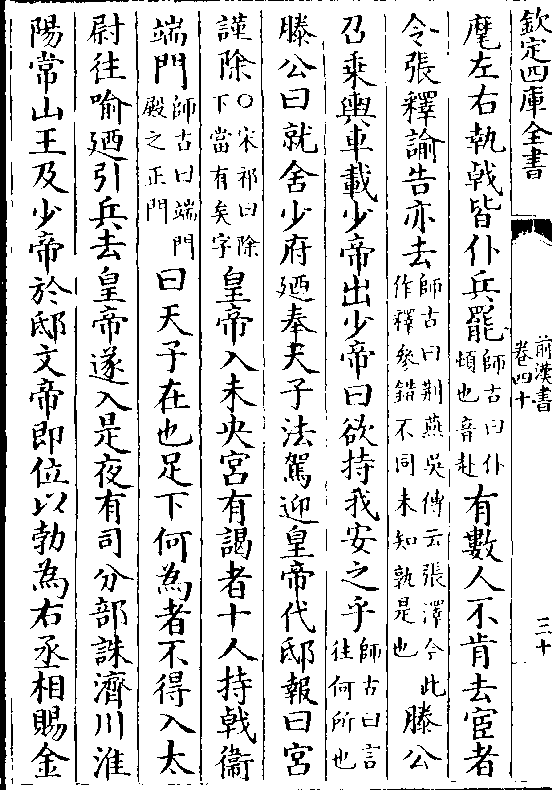 欽定四庫全書
前漢書
卷四十
三十
麾左右執㦸皆仆兵罷師古曰仆頓也音赴有數人不肯去宦者
令張釋諭告亦去師古曰荆燕吳傳云張澤今此作釋參錯不同未知孰是也滕公
召乗輿車載少帝出少帝曰欲持我安之乎師古曰言往何所也
滕公曰就舍少府廼奉天子法駕迎皇帝代邸報曰宮
謹除○宋祁曰除下當有矣字皇帝入未央宮有謁者十人持㦸衞
端門師古曰端門殿之正門曰天子在也足下何為者不得入太
尉往喻廼引兵去皇帝遂入是夜有司分部誅濟川淮
陽常山王及少帝於邸文帝即位以勃為右丞相賜金